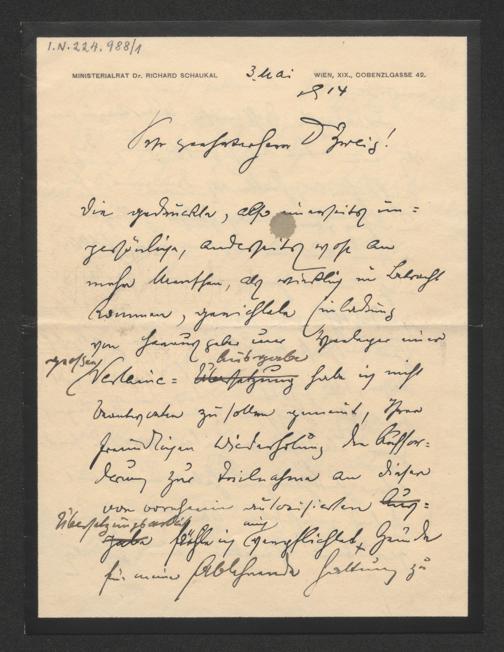 I.N. 224.988/1
MINISTERIALRAT Dr. RICHARD SCHAUKAL 3. Mai WIEN, XIX., COBENZLGASSE 42.
14
Sehr geehrter Herr Dr Zweig!
die gedruckte, also einerseits un=
persönliche, anderseits wohl an
mehr Menschen, als wirklich in Betracht
kommen, gerichtete Einladung
von Herausgeber und Verleger einer
großen Ausgabe
Verlaine= Übersetzung habe ich nicht
beantworten zu sollen gemeint, Ihrer
freundlichen Wiederholung der Auffor=
derung zur Teilnahme an dieser
von vornherein autorisierten Aus=
Übersetzungsarbeit
gabe fühle ich mich verpflichtet, Gründe
für meine ablehnende Haltung zu